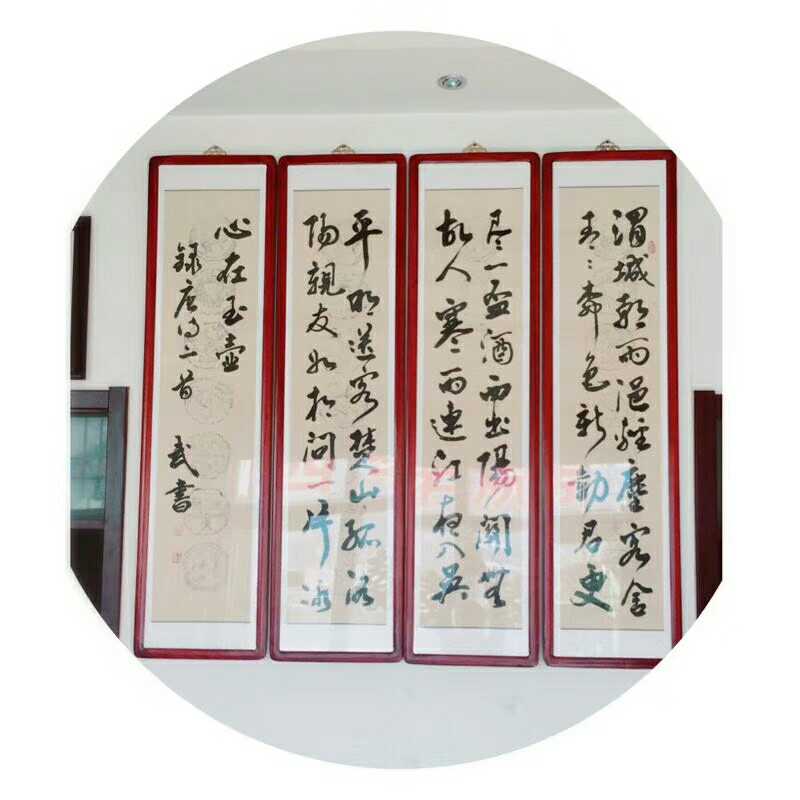 渭城朝雨浥輕塵客舍
青〻柳色新勸君更
尽一盃酒西出陽關無
故人寒雨連江夜入吳
平明送客楚山孤洛
陽親友如相問一片冰
心在玉壺
録唐诗二首 武書